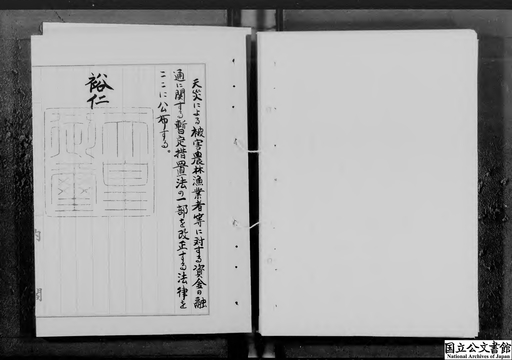 天災による被害農林漁業者等に対する資金の融
通に関する暫定措置法の一部を改正する法律を
ここに公布する。
裕仁
天皇御璽
内閣
国立公文書館
National Archives of Japan